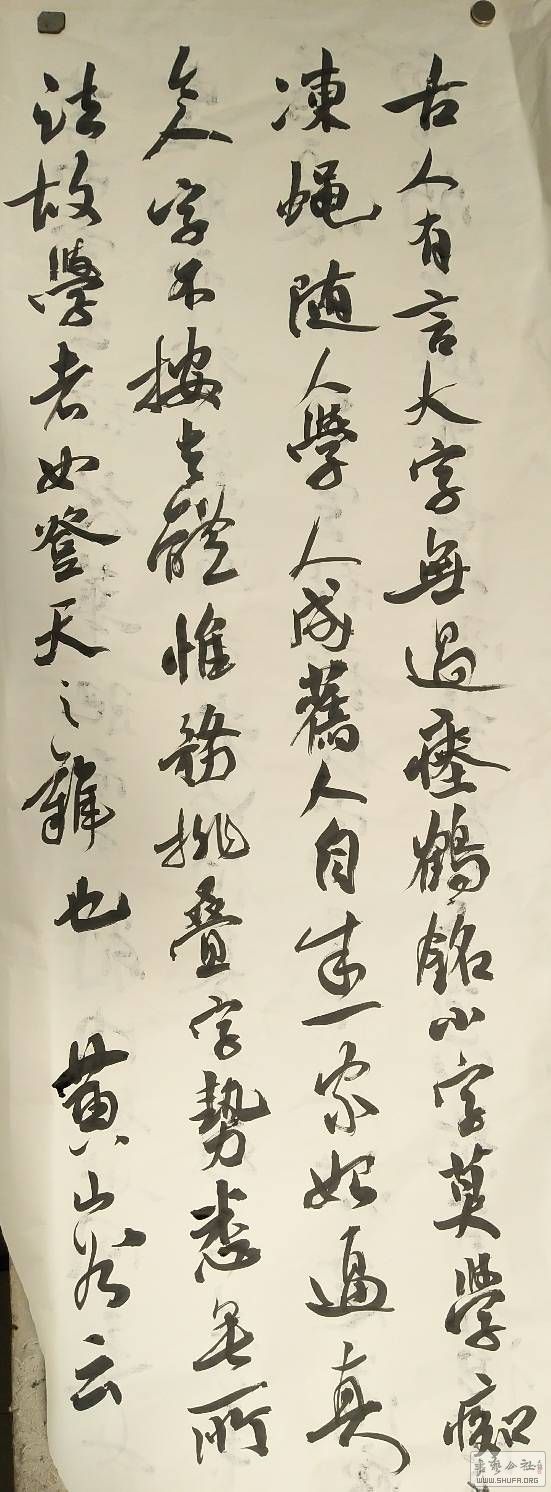 古人有言大字無過瘞鶴銘小字莫學痴
凍蝇随人學人成舊人自成一家始逼真
今人字不按古體惟務排叠字勢悉無所
法故學者如登天之難也 黄山谷云
書藝公社
WWW.SHUFA.ORG